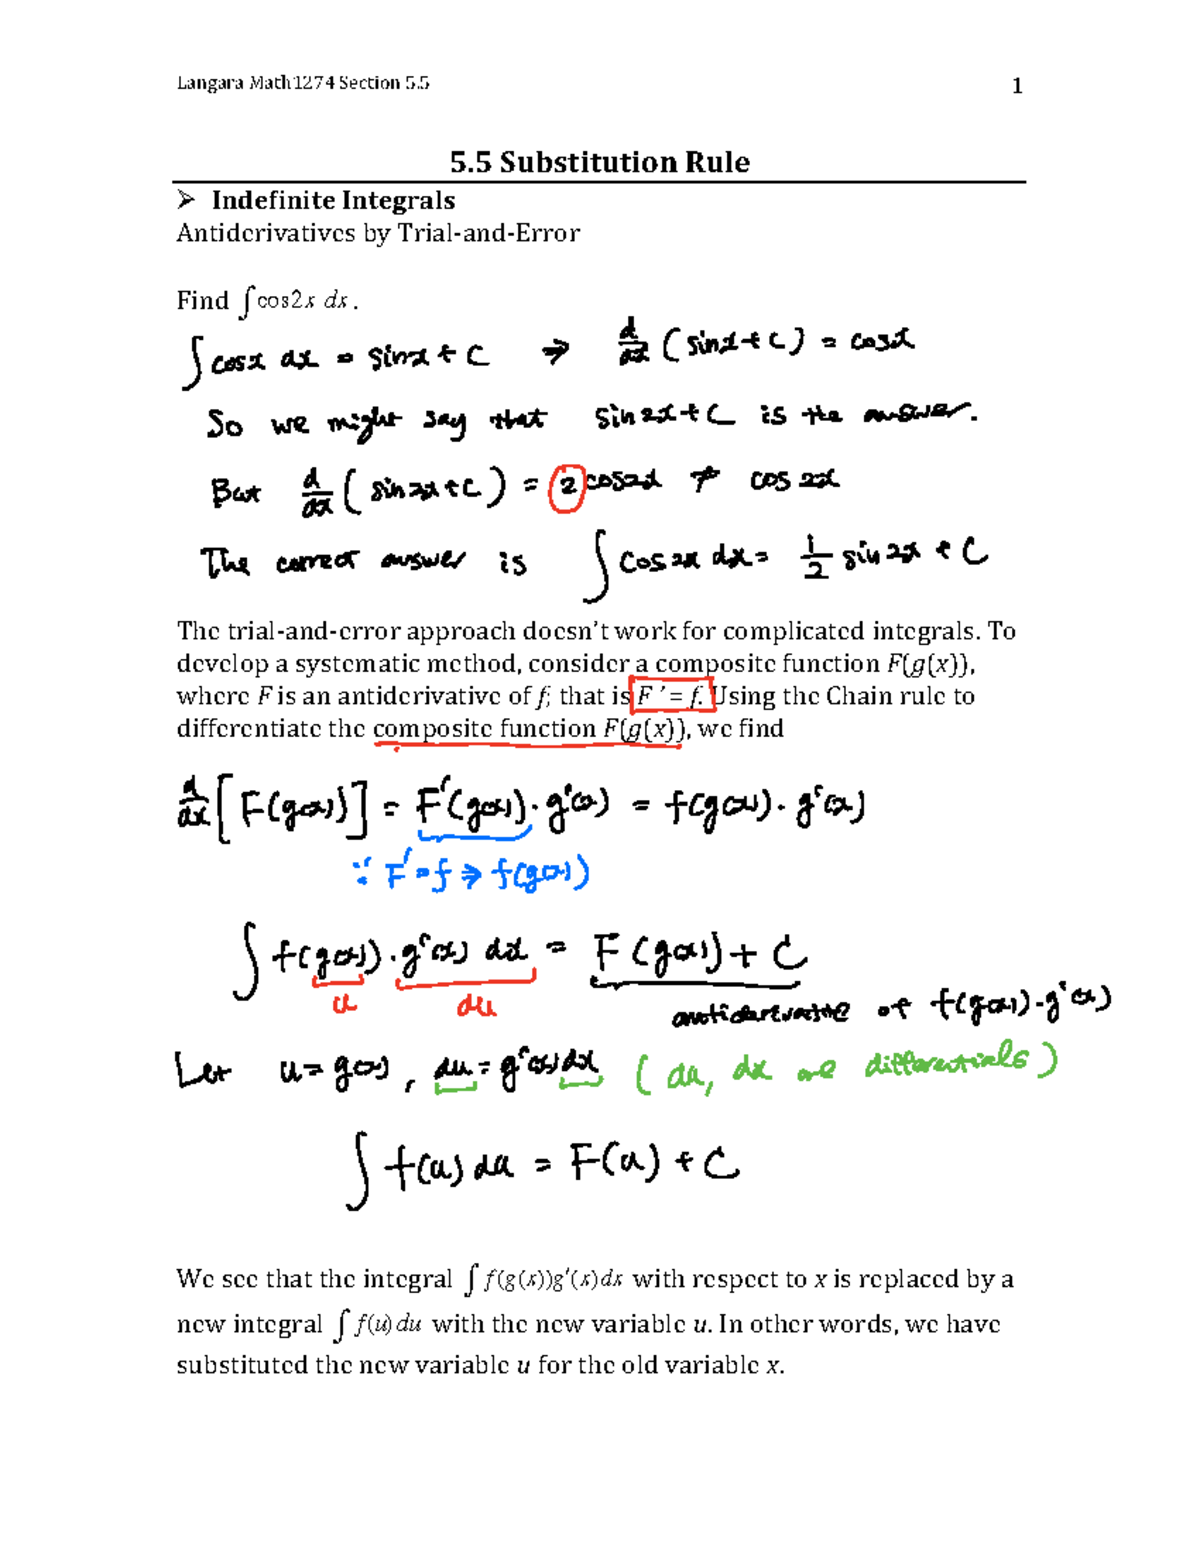 Langara Math1274 Section 5.5
1
5.5 Substitution Rule
➢ Indefinite Integrals
Antiderivatives by Trial-and-Error
Find ∫cos2x dx.
∫cosx dx = sinx + C ⇒ d/dx (sinx + C) = cosx
So we might say that sin2x + C is the answer.
But d/dx (sin2x + C) = 2 cos2x ≠ cos 2x
The correct answer is ∫cos2x dx = 1/2 sin2x + C
The trial-and-error approach doesn't work for complicated integrals. To
develop a systematic method, consider a composite function F(g(x)),
where F is an antiderivative of f, that is F ' = f. Using the Chain rule to
differentiate the composite function F(g(x)), we find
d/dx [F(g(x))] = F'(g(x)) · g'(x) = f(g(x)) · g'(x)
∵ F' = f ⇒ f(g(x))
∫ f(g(x)) · g'(x) dx = F(g(x)) + C
u du
antiderivative of f(g(x)) · g'(x)
Let u = g(x), du = g'(x)dx (du, dx are differentials)
∫ f(u) du = F(u) + C
We see that the integral ∫ f(g(x))g'(x)dx with respect to x is replaced by a
new integral ∫ f(u)du with the new variable u. In other words, we have
substituted the new variable u for the old variable x.